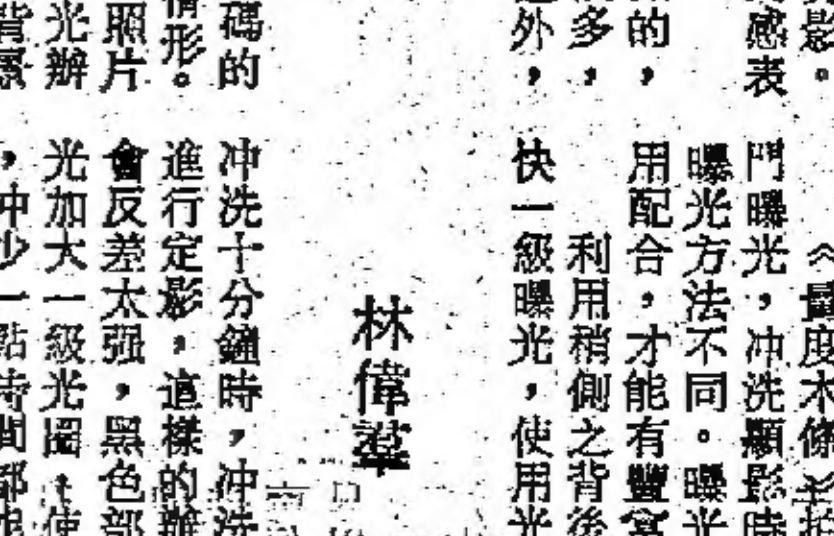 影。
《量度木條
感表
門曝光，冲洗顯影時
曝光方法不同。曝光
的，
用配合，才能有豐富
多，
利用稍側之背後
外，
快一級曝光，使用光
林偉
碼的
冲洗十分鐘時，冲洗
情形。
進行定影，這樣的辦
照片
會反差太强，黑色部
光辦
光加大一級光圈，使
背景
，冲少一點時間都能